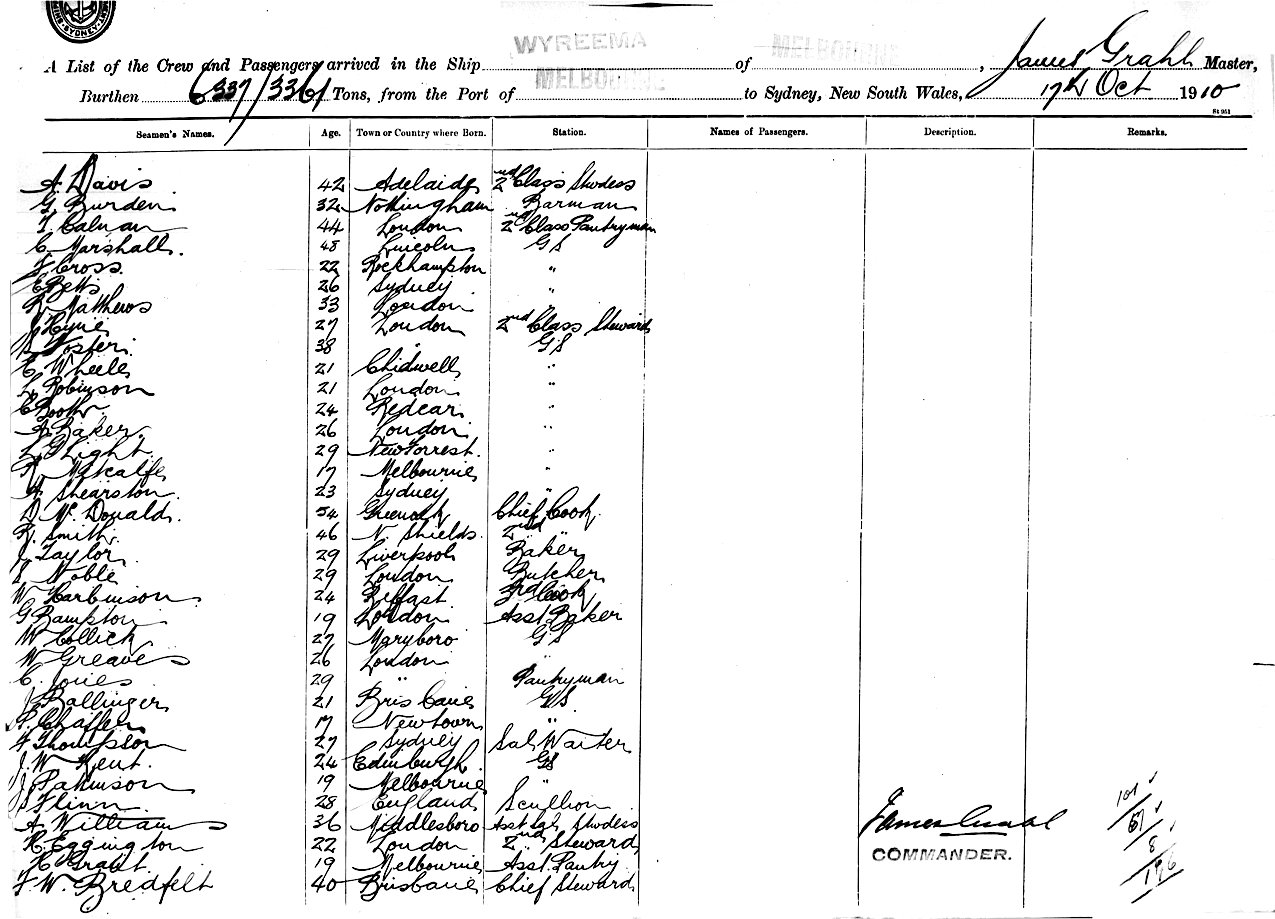 SYDNEY
WYREEMA MELBOURNE
A List of the Crew and Passengers arrived in the Ship of , James Grahl Master,
MELBOURNE
Burthen 6337/3361 Tons, from the Port of to Sydney, New South Wales, 17th Oct 1910
St 951
Seamen's Names. Age. Town or Country where Born. Station. Names of Passengers. Description. Remarks.
A. Davis 42 Adelaide 2nd Class Stwdess
G. Burden 32 Nottingham Barman
T. Calman 44 London 2nd Class Pantryman
C. Marshall. 48 Lincoln GS
F Cross. 22 Rockhampton "
C Betts 26 Sydney "
R Matthews 33 London "
J Hyne 27 London 2nd Class Steward
Foster 38 " GS
C Wheele 21 Chidwell "
L Robinson 21 London "
C Booth 24 Redcar "
A Baker. 26 London "
L G Light. 29 New Forrest. "
R Metcalfe 17 Melbourne "
A Shearston. 23 Sydney "
D Mc Donald. 54 Greenock Chief Cook.
R. Smith. 46 N. Shields. 2nd "
J Taylor 29 Liverpool Baker
S Noble 29 London Butcher
W Harbinson 24 Belfast 3rd Cook
G Bampton 19 London Asst Baker
W Collick 27 Maryboro GS
W Greaves 26 London "
C. Jones 29 " Pantryman
J Ballinger 21 Brisbane GS
Chaffer 17 Newtown "
F Thompson 27 Sydney Sal Waiter
J. W Kent. 24 Edinburgh. GS
J Parkinson 19 Melbourne "
Flinn 28 England Scullion 101
A Williams 36 Middlesboro Asst Sal Stwdess James Grahl 67
H. Eggington 22 London 2nd Steward COMMANDER. 8
H Grant 19 Melbourne Asst. Pantry 176
F W. Bredfelt 40 Brisbane Chief Steward